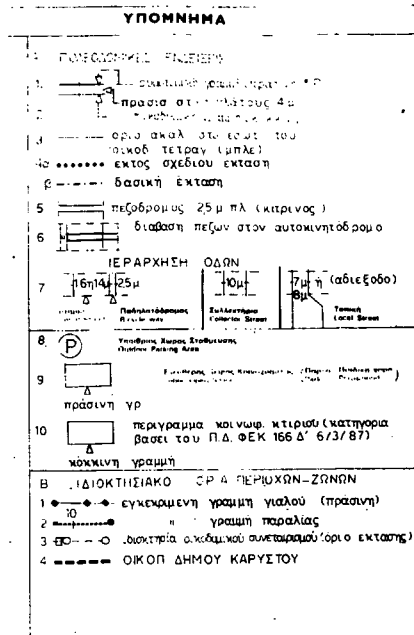 ΥΠΟΜΝΗΜΑ
Α ΠΟΛΕΟΔΟΜΙΚΕΣ
1
πρασια στο πλάτους 4 μ
2
3 οριο ακαλ στο εσωτ του
οικοδ τετραγ (μπλε)
4α εκτος σχεδιου εκταση
β δασική έκταση
5 πεζοδρομυς 2,5 μ πλ (κιτρινος)
6 διαβαση πεζων στον αυτοκινητόδρομο
ΙΕΡΑΡΧΗΣΗ ΟΔΩΝ
7 16η14μ 2,5μ 10μ 7μ ή (αδιεξοδο)
8μ
Ποδηλατόδρομος Συλλεκτήρια Τοπική
Bicycle way Collector Street Local Street
8 P Υπαίθριος Χωρος Σταθμευσης
Outdoor Parking Area
9
πράσινη γρ
10 περιγραμμα κοινωφ. κτιριού (κατηγορια
βασει του Π.Δ. ΦΕΚ 166 Δ' 6/3/87)
κόκκινη γραμμή
Β ΙΔΙΟΚΤΗΣΙΑΚΟ ΟΡΙΑ ΠΕΡΙΟΧΩΝ-ΖΩΝΩΝ
1 εγκεκριμενη γραμμη γιαλού (πράσινη)
10
2 " γραμμή παραλίας
3 ιδιοκτησία οικοδομικού συνεταιρισμού (όριο εκτασης)
4 ΟΙΚΟΠ ΔΗΜΟΥ ΚΑΡΥΣΤΟΥ